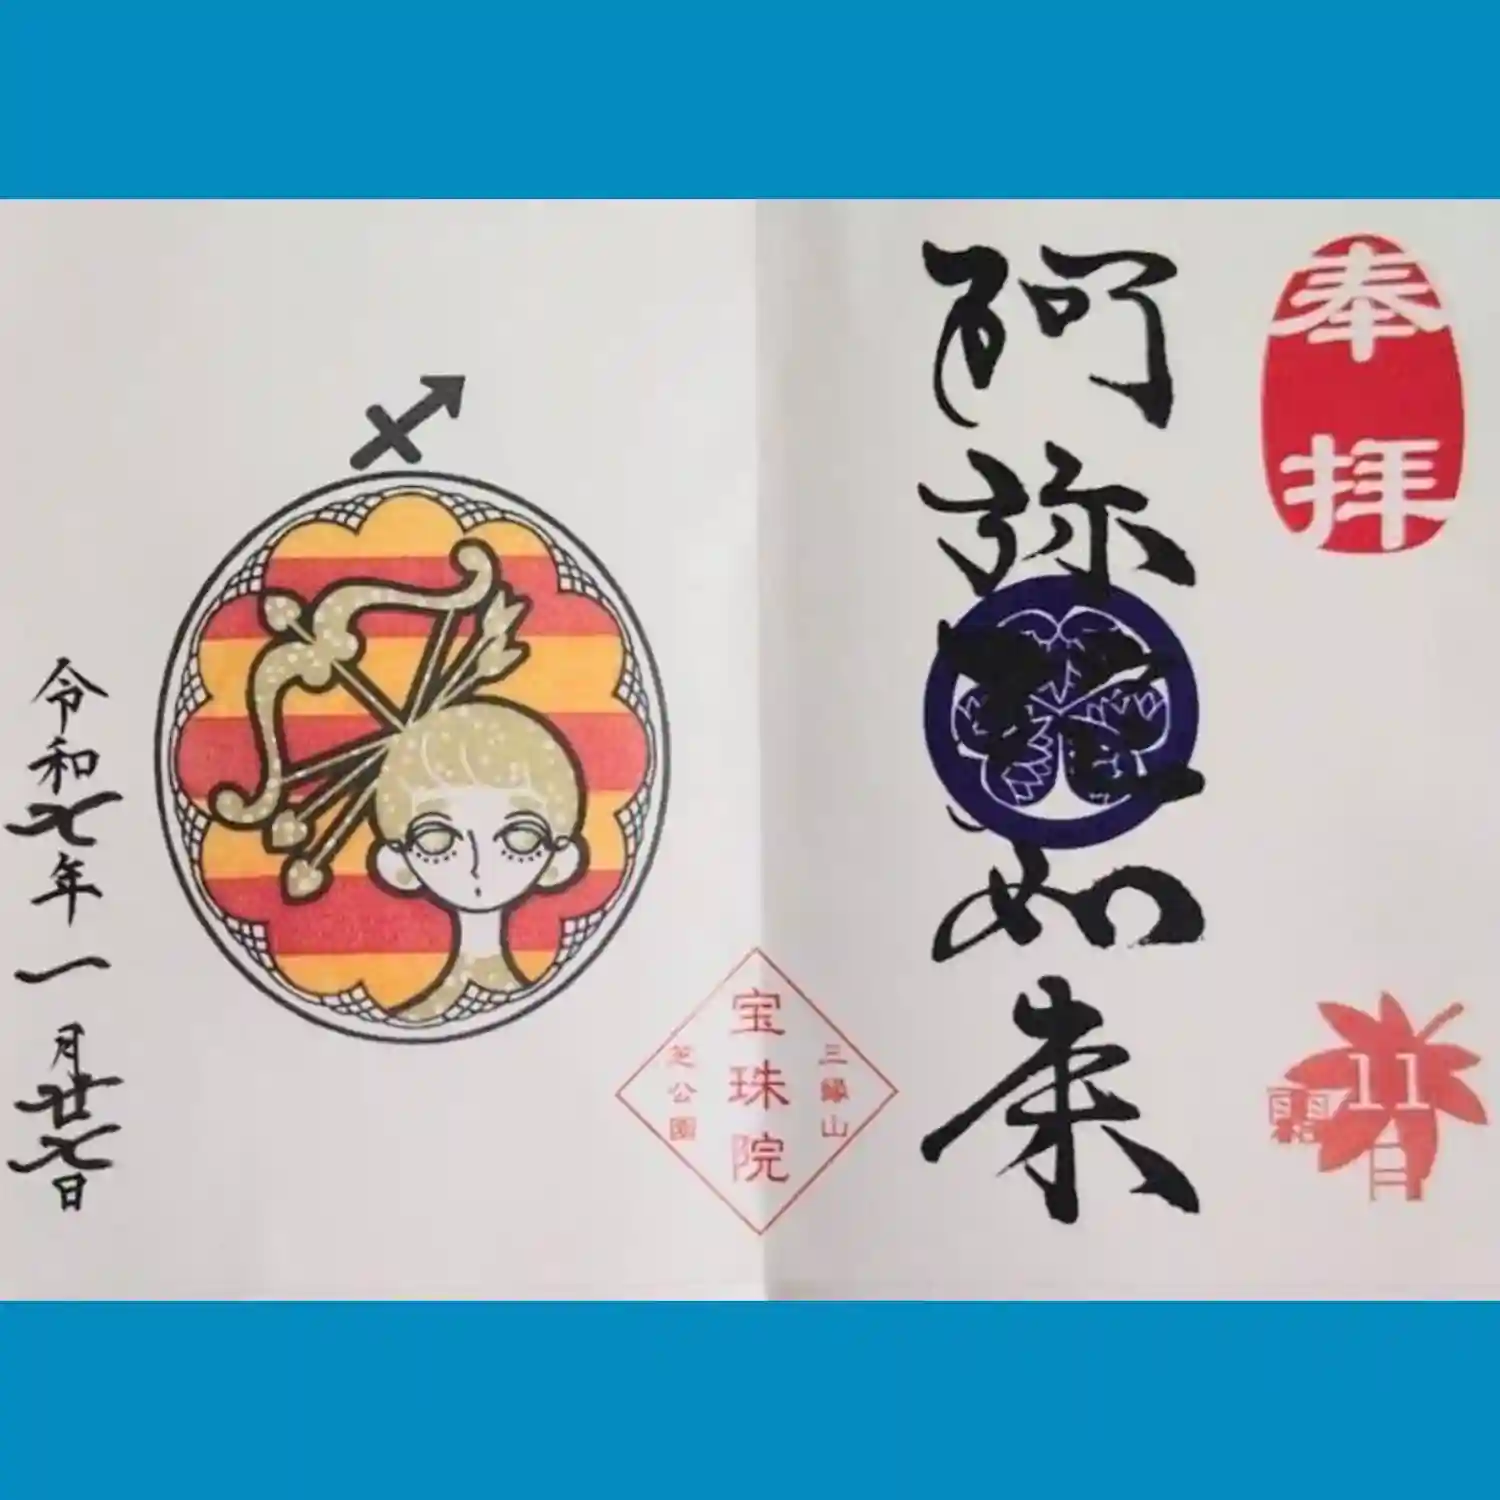 奉拝
阿弥陀如来
11月
霜
三縁山
宝珠院
芝公園
令和七年一月廿七日